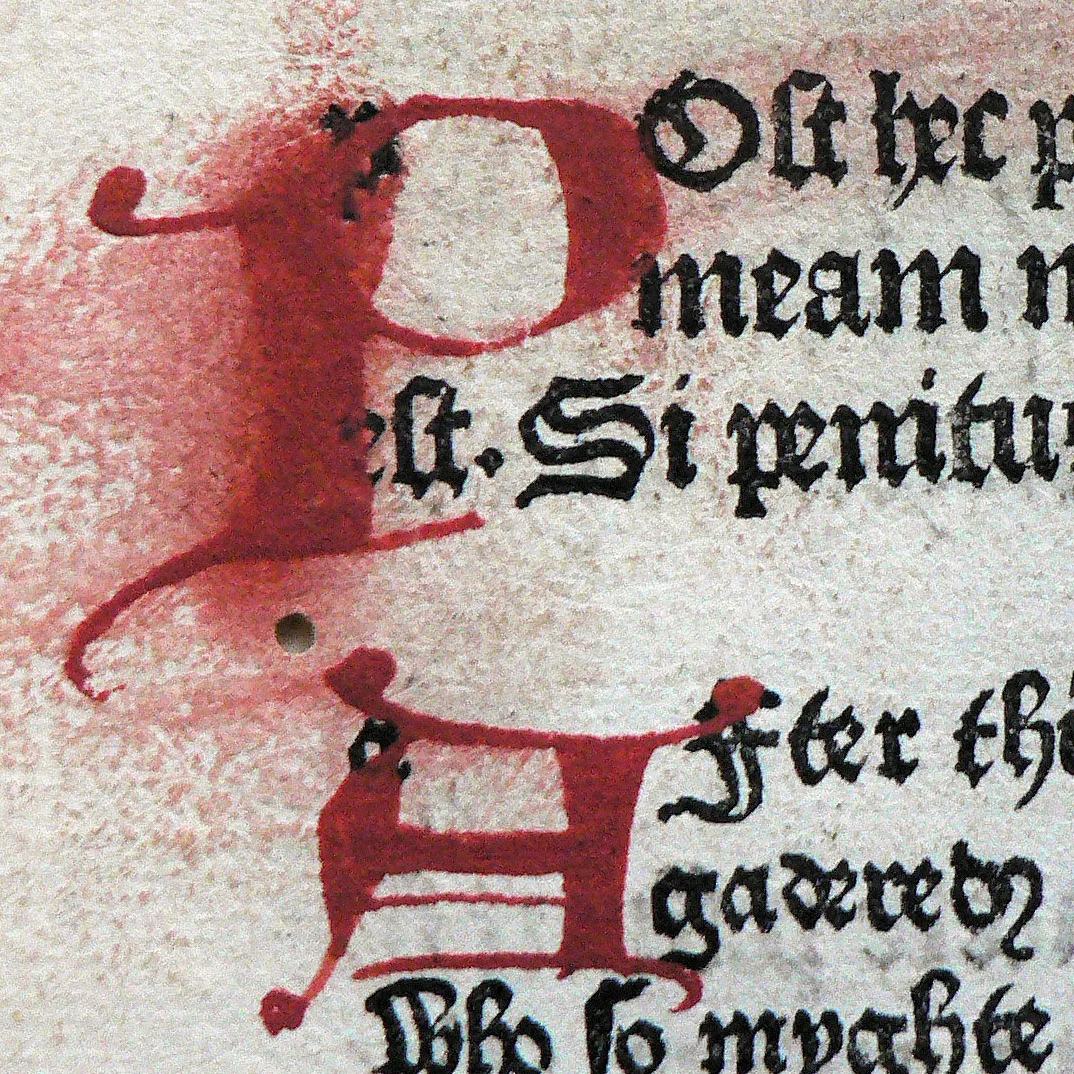 POſt hec
meam
eſt. Si penitu
After thi
gadered
Who ſo myghte